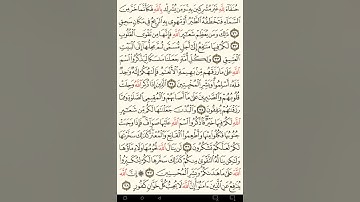 حُنَفَآءَ لِلَّهِ غَيْرَ مُشْرِكِينَ بِهِۦۚ وَمَن يُشْرِكْ بِٱللَّهِ فَكَأَنَّمَا خَرَّ مِنَ
ٱلسَّمَآءِ فَتَخْطَفُهُ ٱلطَّيْرُ أَوْ تَهْوِى بِهِ ٱلرِّيحُ فِى مَكَانٍ سَحِيقٍ
٣١ ذَٰلِكَ وَمَن يُعَظِّمْ شَعَٰٓئِرَ ٱللَّهِ فَإِنَّهَا مِن تَقْوَى ٱلْقُلُوبِ
٣٢ لَكُمْ فِيهَا مَنَٰفِعُ إِلَىٰٓ أَجَلٍ مُّسَمًّى ثُمَّ مَحِلُّهَآ إِلَى ٱلْبَيْتِ
ٱلْعَتِيقِ ٣٣ وَلِكُلِّ أُمَّةٍ جَعَلْنَا مَنسَكًا لِّيَذْكُرُوا۟ ٱسْمَ ٱللَّهِ
عَلَىٰ مَا رَزَقَهُم مِّنۢ بَهِيمَةِ ٱلْأَنْعَٰمِۗ فَإِلَٰهُكُمْ إِلَٰهٌ وَٰحِدٌ
فَلَهُۥٓ أَسْلِمُوا۟ۗ وَبَشِّرِ ٱلْمُخْبِتِينَ ٣٤ ٱلَّذِينَ إِذَا ذُكِرَ ٱللَّهُ وَجِلَتْ
قُلُوبُهُمْ وَٱلصَّٰبِرِينَ عَلَىٰ مَآ أَصَابَهُمْ وَٱلْمُقِيمِى ٱلصَّلَوٰةِ وَمِمَّا
رَزَقْنَٰهُمْ يُنفِقُونَ ٣٥ وَٱلْبُدْنَ جَعَلْنَٰهَا لَكُم مِّن شَعَٰٓئِرِ
ٱللَّهِ لَكُمْ فِيهَا خَيْرٌۖ فَٱذْكُرُوا۟ ٱسْمَ ٱللَّهِ عَلَيْهَا صَوَآفَّۖ فَإِذَا وَجَبَتْ
جُنُوبُهَا فَكُلُوا۟ مِنْهَا وَأَطْعِمُوا۟ ٱلْقَانِعَ وَٱلْمُعْتَرَّۚ كَذَٰلِكَ سَخَّرْنَٰهَا
لَكُمْ لَعَلَّكُمْ تَشْكُرُونَ ٣٦ لَن يَنَالَ ٱللَّهَ لُحُومُهَا وَلَا دِمَآؤُهَا
وَلَٰكِن يَنَالُهُ ٱلتَّقْوَىٰ مِنكُمْۚ كَذَٰلِكَ سَخَّرَهَا لَكُمْ لِتُكَبِّرُوا۟
ٱللَّهَ عَلَىٰ مَا هَدَىٰكُمْۗ وَبَشِّرِ ٱلْمُحْسِنِينَ ٣٧ ۞ إِنَّ ٱللَّهَ
يُدَٰفِعُ عَنِ ٱلَّذِينَ ءَامَنُوٓا۟ۗ إِنَّ ٱللَّهَ لَا يُحِبُّ كُلَّ خَوَّانٍ كَفُورٍ ٣٨